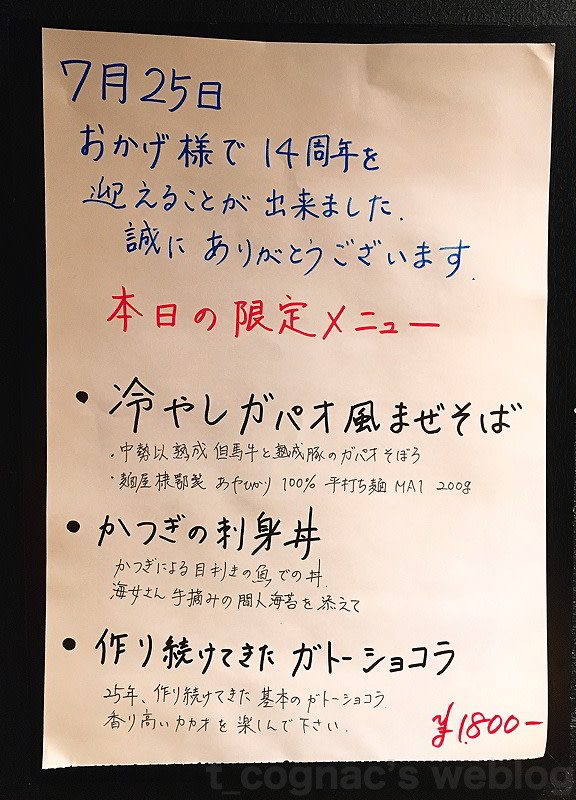 7月25日
おかげ様で 14周年を
迎えることが 出来ました.
誠に ありがとうございます.
本日の限定メニュー
・冷やしガパオ風まぜそば
・中勢以熟成 但馬牛と熟成豚のガパオそぼろ
・麺屋棣鄂製 あやひかり 100% 平打ち麺 MA1 200g
・かつぎの刺身丼
かつぎによる目利きの魚での丼.
海女さん 手摘みの間人海苔を添えて
・作り続けてきた ガトーショコラ
25年、作り続けてきた 基本のガトーショコラ
香り高いカカオを 楽しんで下さい.
¥1,800-
t_cognac's weblog